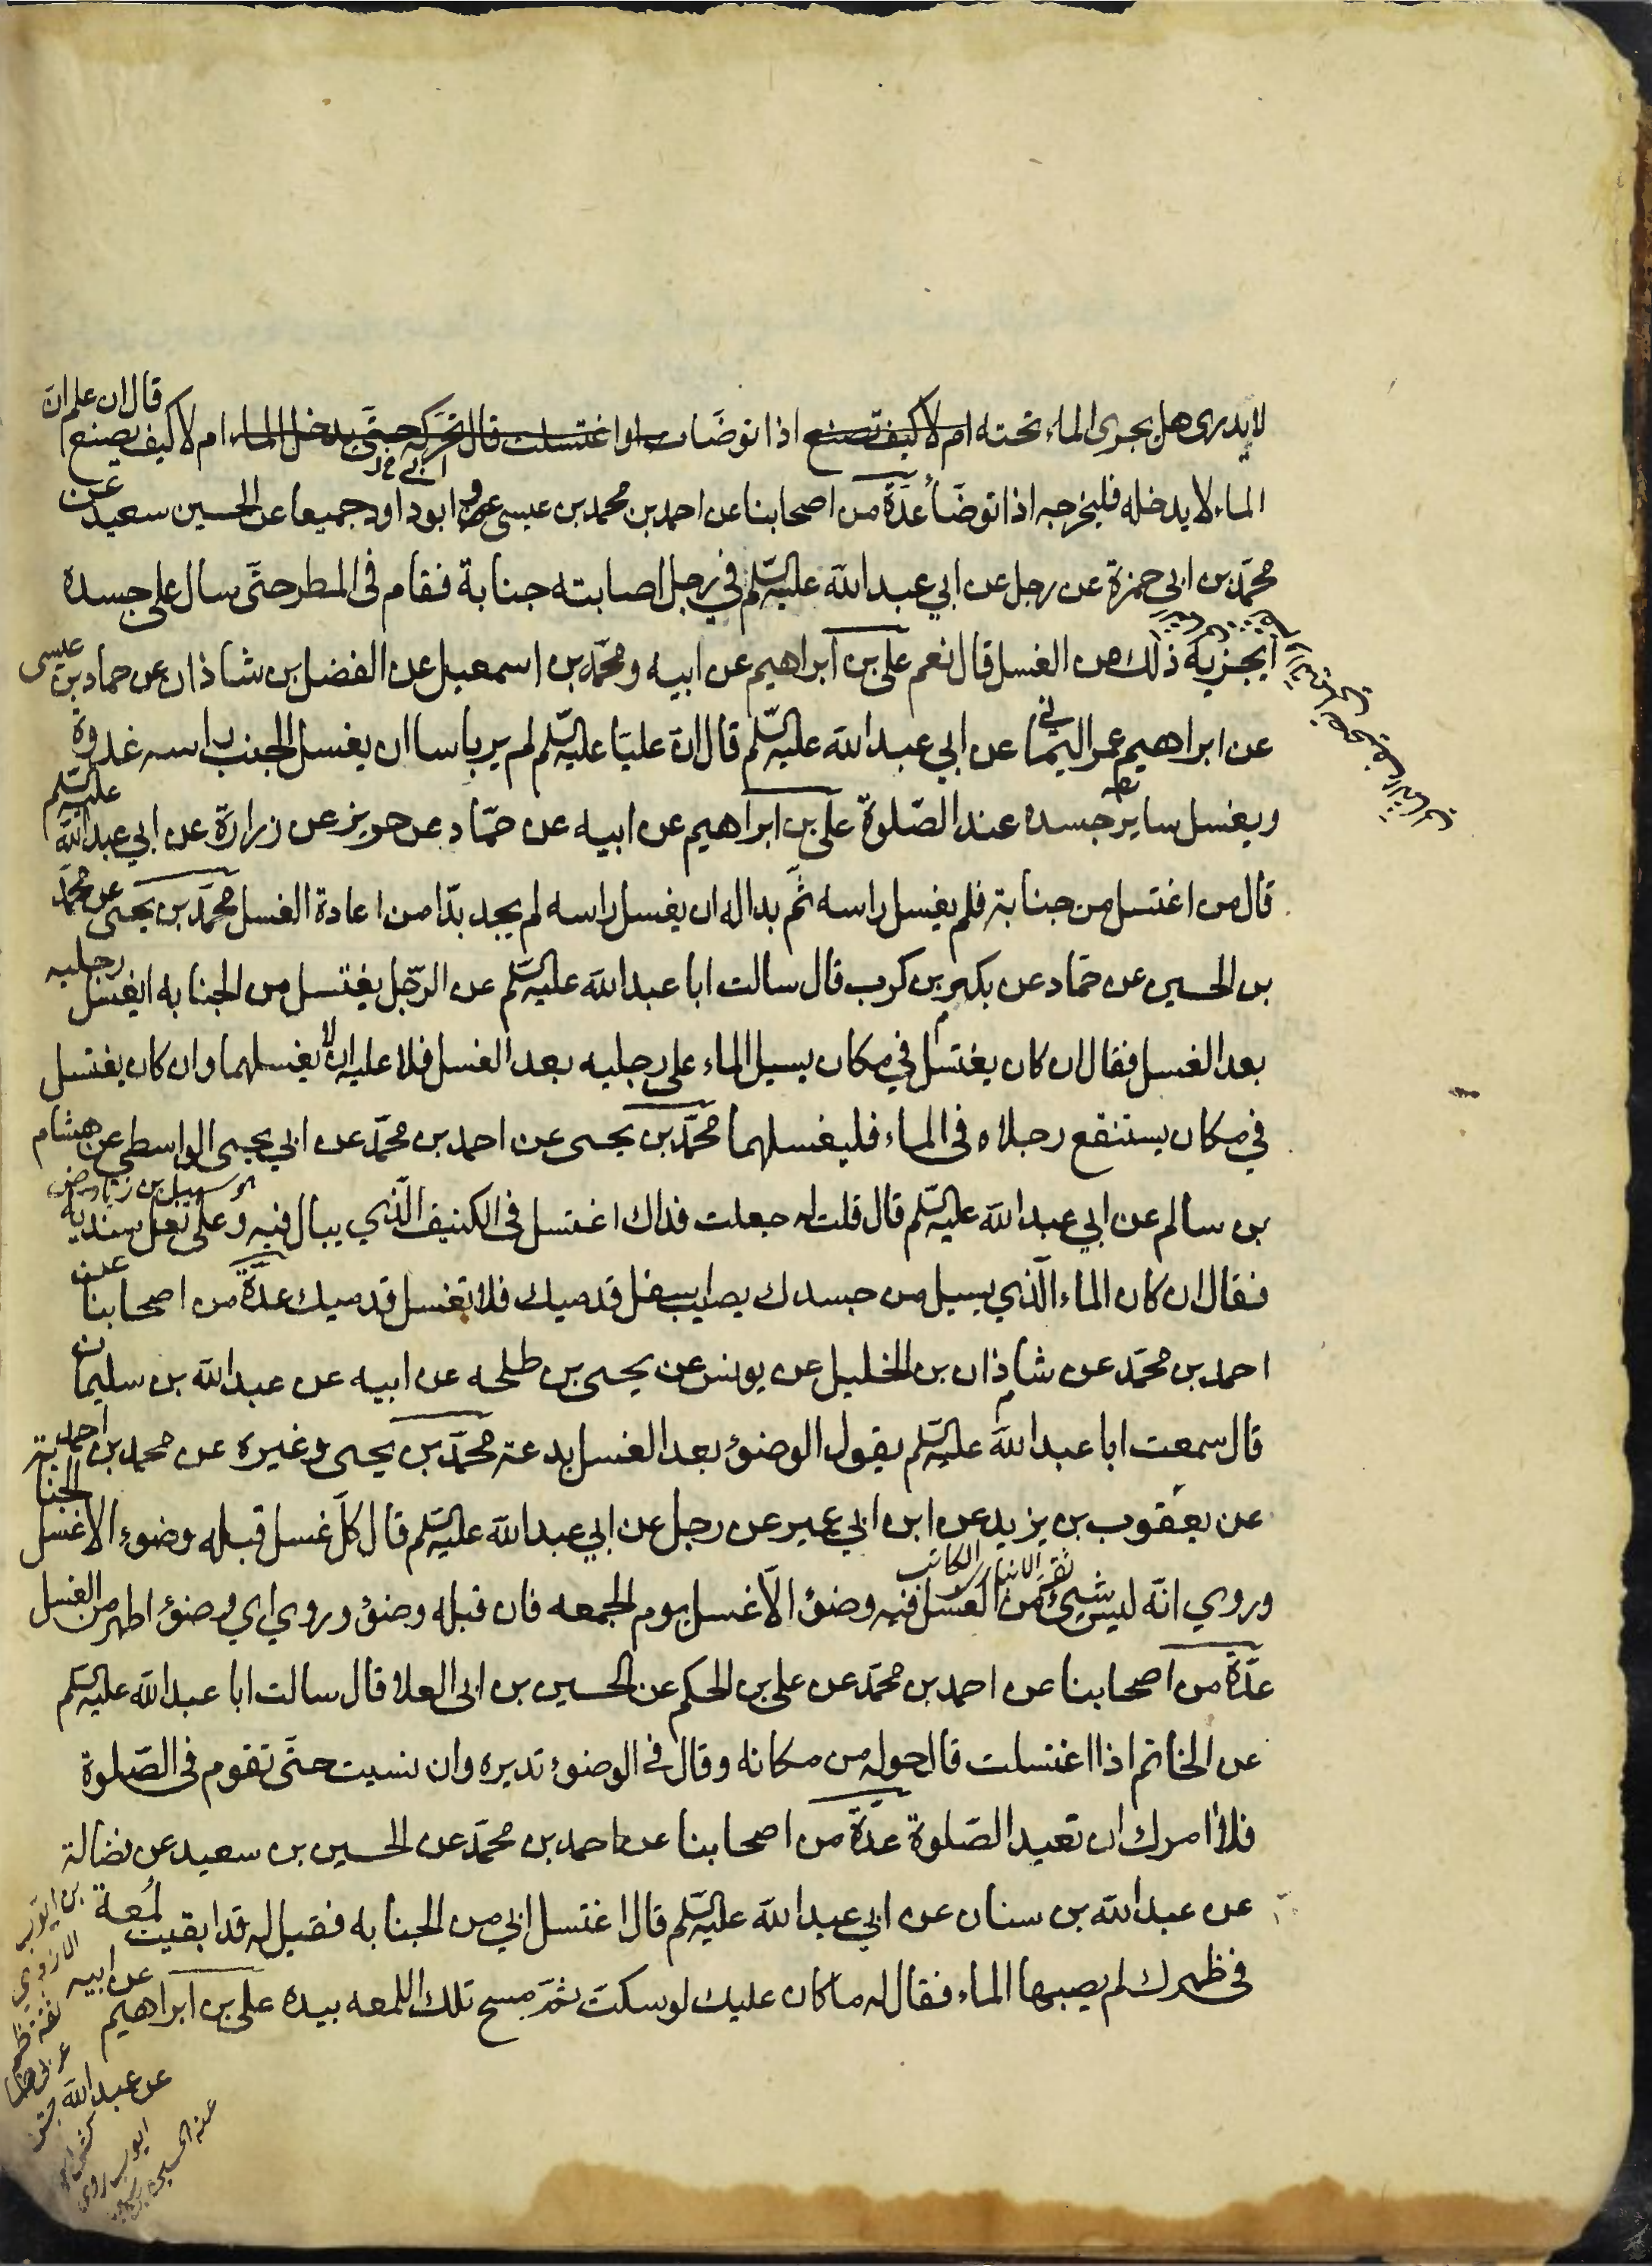 لا يدرى هل يجرى الماء تحته ام لا كيف تصنع اذا توضات او اغتسلت قال تحركه حتى يدخل الماء ام لا كيف يصنع قال ان علم ان
الماء لا يدخله فليخرجه اذا توضأ عدة من اصحابنا عن احمد بن محمد بن عيسى و ابو داود جميعا عن الحسين سعيد عن
محمد بن ابى حمزة عن رجل عن ابي عبد الله عليه السلم في رجل اصابته جنابة فقام فى المطر حتى سال على جسده
ايجزيه ذلك من الغسل قال نعم على بن ابراهيم عن ابيه ومحمد بن اسمعيل عن الفضل بن شاذان عن حماد بن عيسى
عن ابراهيم عمر اليماني عن ابي عبد الله عليه السلم قال ان عليا عليه السلم لم ير باسا ان يغسل الجنب راسه غدوة
ويغسل ساير جسده عند الصلوة على بن ابراهيم عن ابيه عن حماد عن حريز عن زرارة عن ابي عبد الله عليه السلم
قال من اغتسل من جنابة فلم يغسل راسه ثم بدا له ان يغسل راسه لم يجد بدا من اعادة الغسل محمد بن يحيى عن محمد
بن الحسين عن حماد عن بكير بن كرب قال سالت ابا عبد الله عليه السلم عن الرجل يغتسل من الجنابه ايغسل رجليه
بعد الغسل فقال ان كان يغتسل في مكان يسيل الماء على رجليه بعد الغسل فلا عليه ان لا يغسلهما وان كان يغتسل
في مكان يستنقع رجلاه فى الماء فليغسلهما محمد بن يحيى عن احمد بن محمد عن ابي يحيى الواسطي عن هشام
بن سالم عن ابي عبد الله عليه السلم قال قلت له جعلت فداك اغتسل فى الكنيف الذي يبال فيه وعلى نعل سندية
فقال ان كان الماء الذي يسيل من جسدك يصيب اسفل قدميك فلا تغسل قدميك عدة من اصحابنا عن
احمد بن محمد عن شاذان بن الخليل عن يونس عن يحيى بن طلحه عن ابيه عن عبد الله بن سليمان
قال سمعت ابا عبد الله عليه السلم يقول الوضوء بعد الغسل بدعة محمد بن يحيى وغيره عن محمد بن احمد
عن يعقوب بن يزيد عن ابن ابي عمير عن رجل عن ابي عبد الله عليه السلم قال كل غسل قبله وضوء الا غسل الجنابة
وروي انه ليس شيئ من الغسل فيه وضوء الا غسل يوم الجمعه فان قبله وضوء وروي اي وضوء اطهر من الغسل
عدة من اصحابنا عن احمد بن محمد عن على بن الحكم عن الحسين بن ابى العلا قال سالت ابا عبد الله عليه السلم
عن الخاتم اذا اغتسلت قال حوله من مكانه وقال في الوضوء تديره وان نسيت حتى تقوم فى الصلوة
فلا امرك ان تعيد الصلوة عدة من اصحابنا عن احمد بن محمد عن الحسين بن سعيد عن فضالة
عن عبد الله بن سنان عن ابي عبد الله عليه السلم قال اغتسل ابي من الجنابه فقيل له قد ابقيت لمعة
فى ظهرك لم يصبها الماء فقال له ما كان عليك لو سكت ثم مسح تلك اللمعه بيده على بن ابراهيم عن ابيه
عن عبد الله